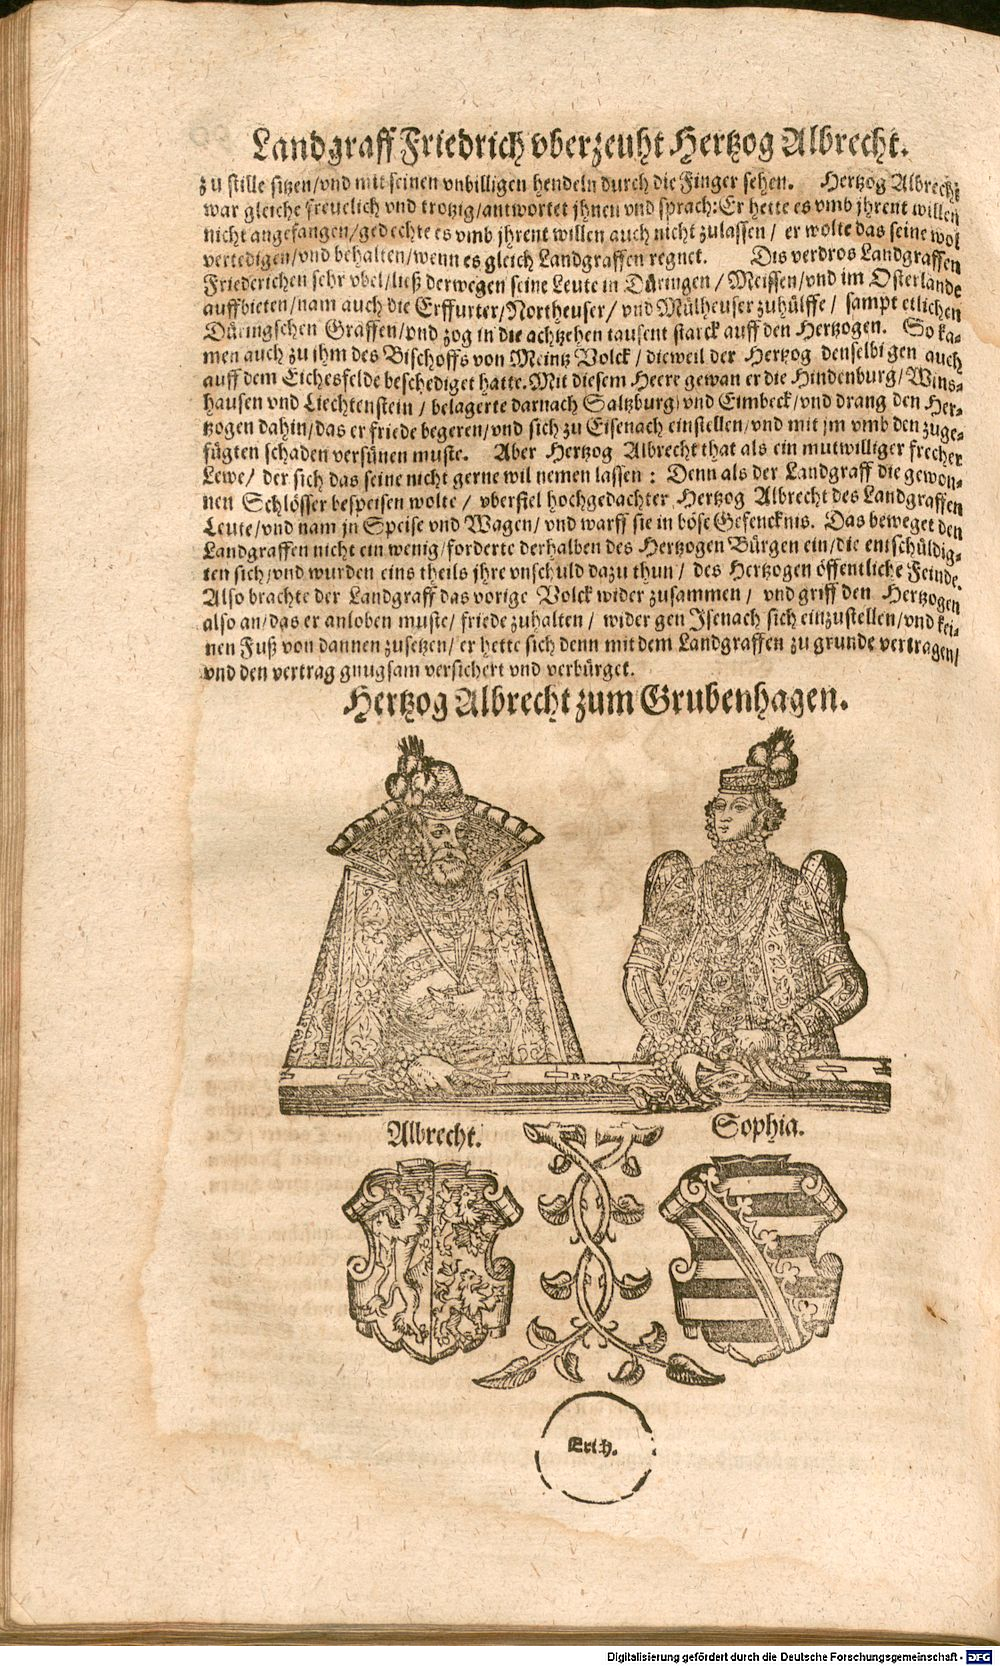 Landgraff Friedrich vberzeuht Hertzog Albrecht.
zu stille sitzen/vnd mit seinen vnbilligen hendeln durch die Finger sehen. Hertzog Albrecht
war gleiche freuelich vnd trotzig/antwortet jhnen vnd sprach: Er hette es vmb jhrent willen
nicht angefangen/gedechte es vmb jhrent willen auch nicht zulassen/ er wolte das seine wol
vertedigen/vnd behalten/wenn es gleich Landgraffen regnet. Dis verdros Landgraffen
Friederichen sehr vbel/ließ derwegen seine Leute in Düringen/ Meissen/vnd im Osterlande
auffbieten/nam auch die Erffurter/Northeuser/ vnd Mülheuser zuhülffe/ sampt etlichen
Düringschen Graffen/vnd zog in die achtzehen tausent starck auff den Hertzogen. So ka-
men auch zu ihm des Bischoffs von Meintz Volck/ dieweil der Hertzog denselbigen auch
auff dem Eichesfelde beschediget hatte. Mit diesem Heere gewan er die Hindenburg/ Wins-
hausen vnd Liechtenstein/ belagerte darnach Saltzburg/ vnd Eimbeck/vnd drang den Her-
tzogen dahin/das er friede begeren/vnd sich zu Eisenach einstellen/vnd mit jm vmb den zuge-
fügten schaden versünen muste. Aber Hertzog Albrecht that als ein mutwilliger frecher
Lewe/ der sich das seine nicht gerne wil nemen lassen: Denn als der Landgraff die gewon-
nen Schlösser bespeisen wolte/ vberfiel hochgedachter Hertzog Albrecht des Landgraffen
Leute/vnd nam jn Speise vnd Wagen/ vnd warff sie in böse Gefencknis. Das beweget den
Landgraffen nicht ein wenig/forderte derhalben des Hertzogen Bürgen ein/die entschüldig-
ten sich/vnd wurden eins theils jhre vnschuld dazu thun/ des Hertzogen öffentliche Feinde.
Also brachte der Landgraff das vorige Volck wider zusammen/ vnd griff den Hertzogen
also an/das er anloben muste/ friede zuhalten/ wider gen Jsenach sich einzustellen/vnd kei-
nen Fuß von dannen zusetzen/ er hette sich denn mit dem Landgraffen zu grunde vertragen/
vnd den vertrag gnugsam versichert vnd verbürget.
Hertzog Albrecht zum Grubenhagen.
Albrecht. Sophia.
Erich.
Digitalisierung gefördert durch die Deutsche Forschungsgemeinschaft - DFG